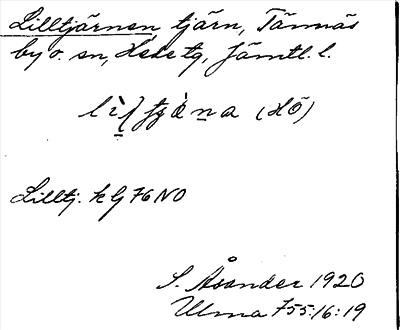 Lilltjärnen, tjärn, Tännäs
by o. sn, Hede tg, Jämtl. l.
(HÖ)
Lilltj. k bj 76 NO
S. Åsander 1920
Ulma 755:16:19